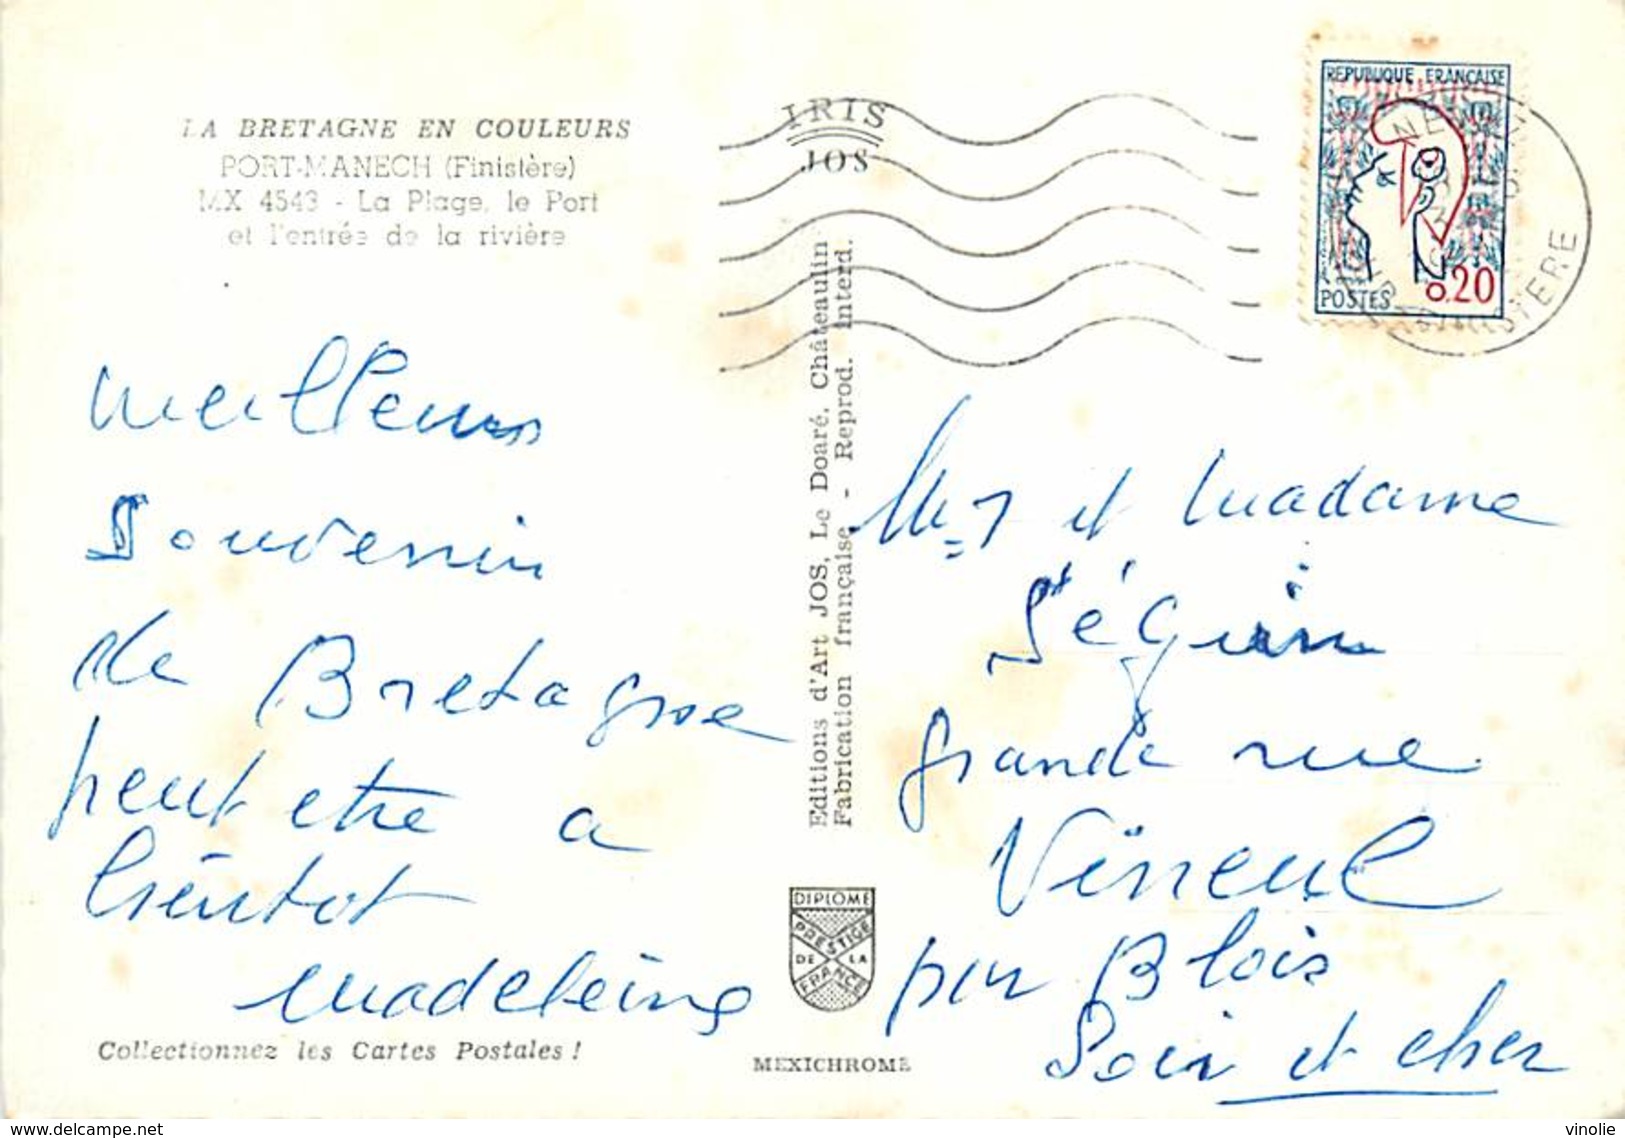 LA BRETAGNE EN COULEURS
PORT-MANECH (Finistère)
MX 4543 - La Plage, le Port
et l'entrée de la rivière
IRIS
JOS
REPUBLIQUE FRANÇAISE
POSTES 0.20
NE
FINISTERE
meilleurs
souvenirs
de Bretagne
peut etre a
bientot
madeleine
Collectionnez les Cartes Postales !
Editions d'Art JOS, Le Doaré, Châteaulin
Fabrication française - Reprod. interd.
DIPLOME
PRESTIGE
DE LA
FRANCE
MEXICHROME
Mr et Madame
Séguin
grande rue
Vineuil
par Blois
Loir et cher
www.delcampe.net
vinolie